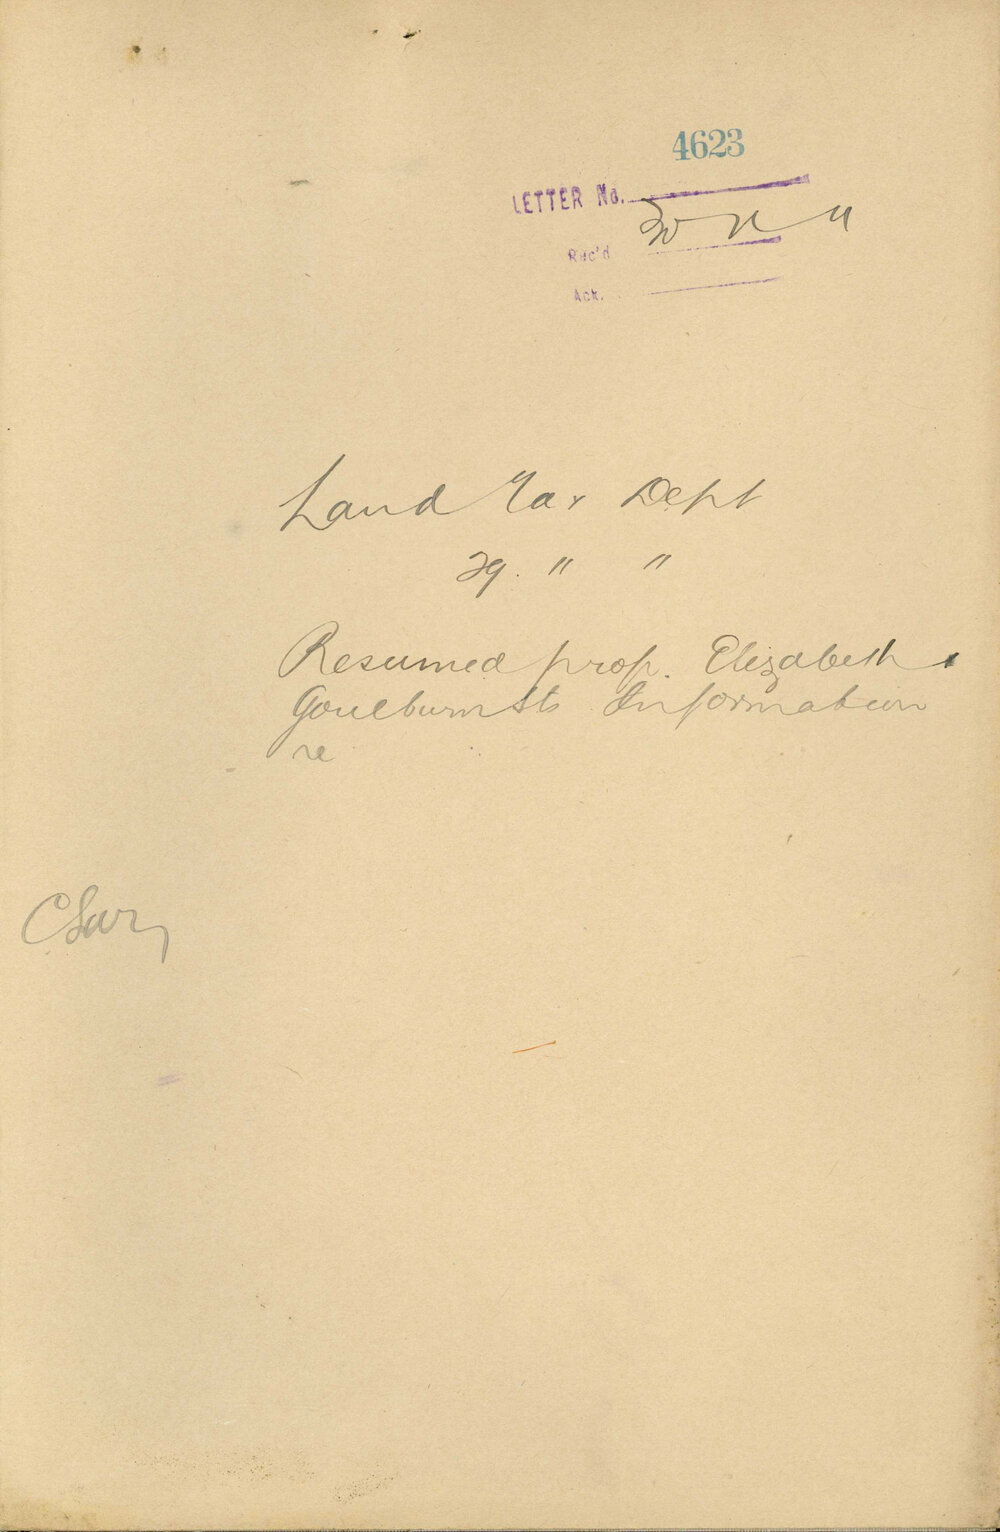 4623
LETTER No.
Rec'd
Ack.
Land Tax Dept
29. " "
Resumed prop. Elizabeth &
Goulburn Sts Information
re